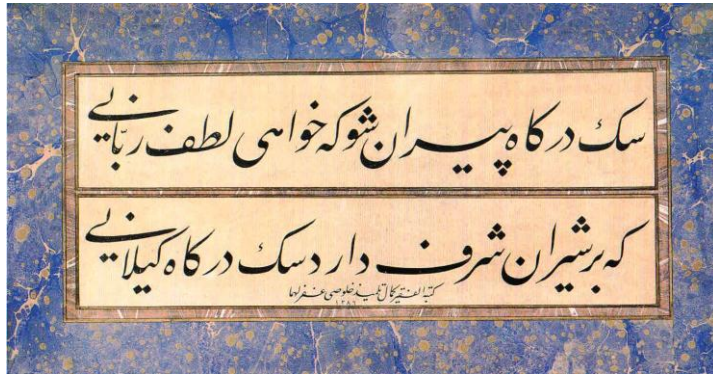 سک درکاه پیران شو که خواهی لطف ربّانیی
که بر شیران شرف دارد سک درکاه کیلانیی
کتبه الفقیر کمال تلمیذ خلوصی غفر لهما
۱۲۸۹